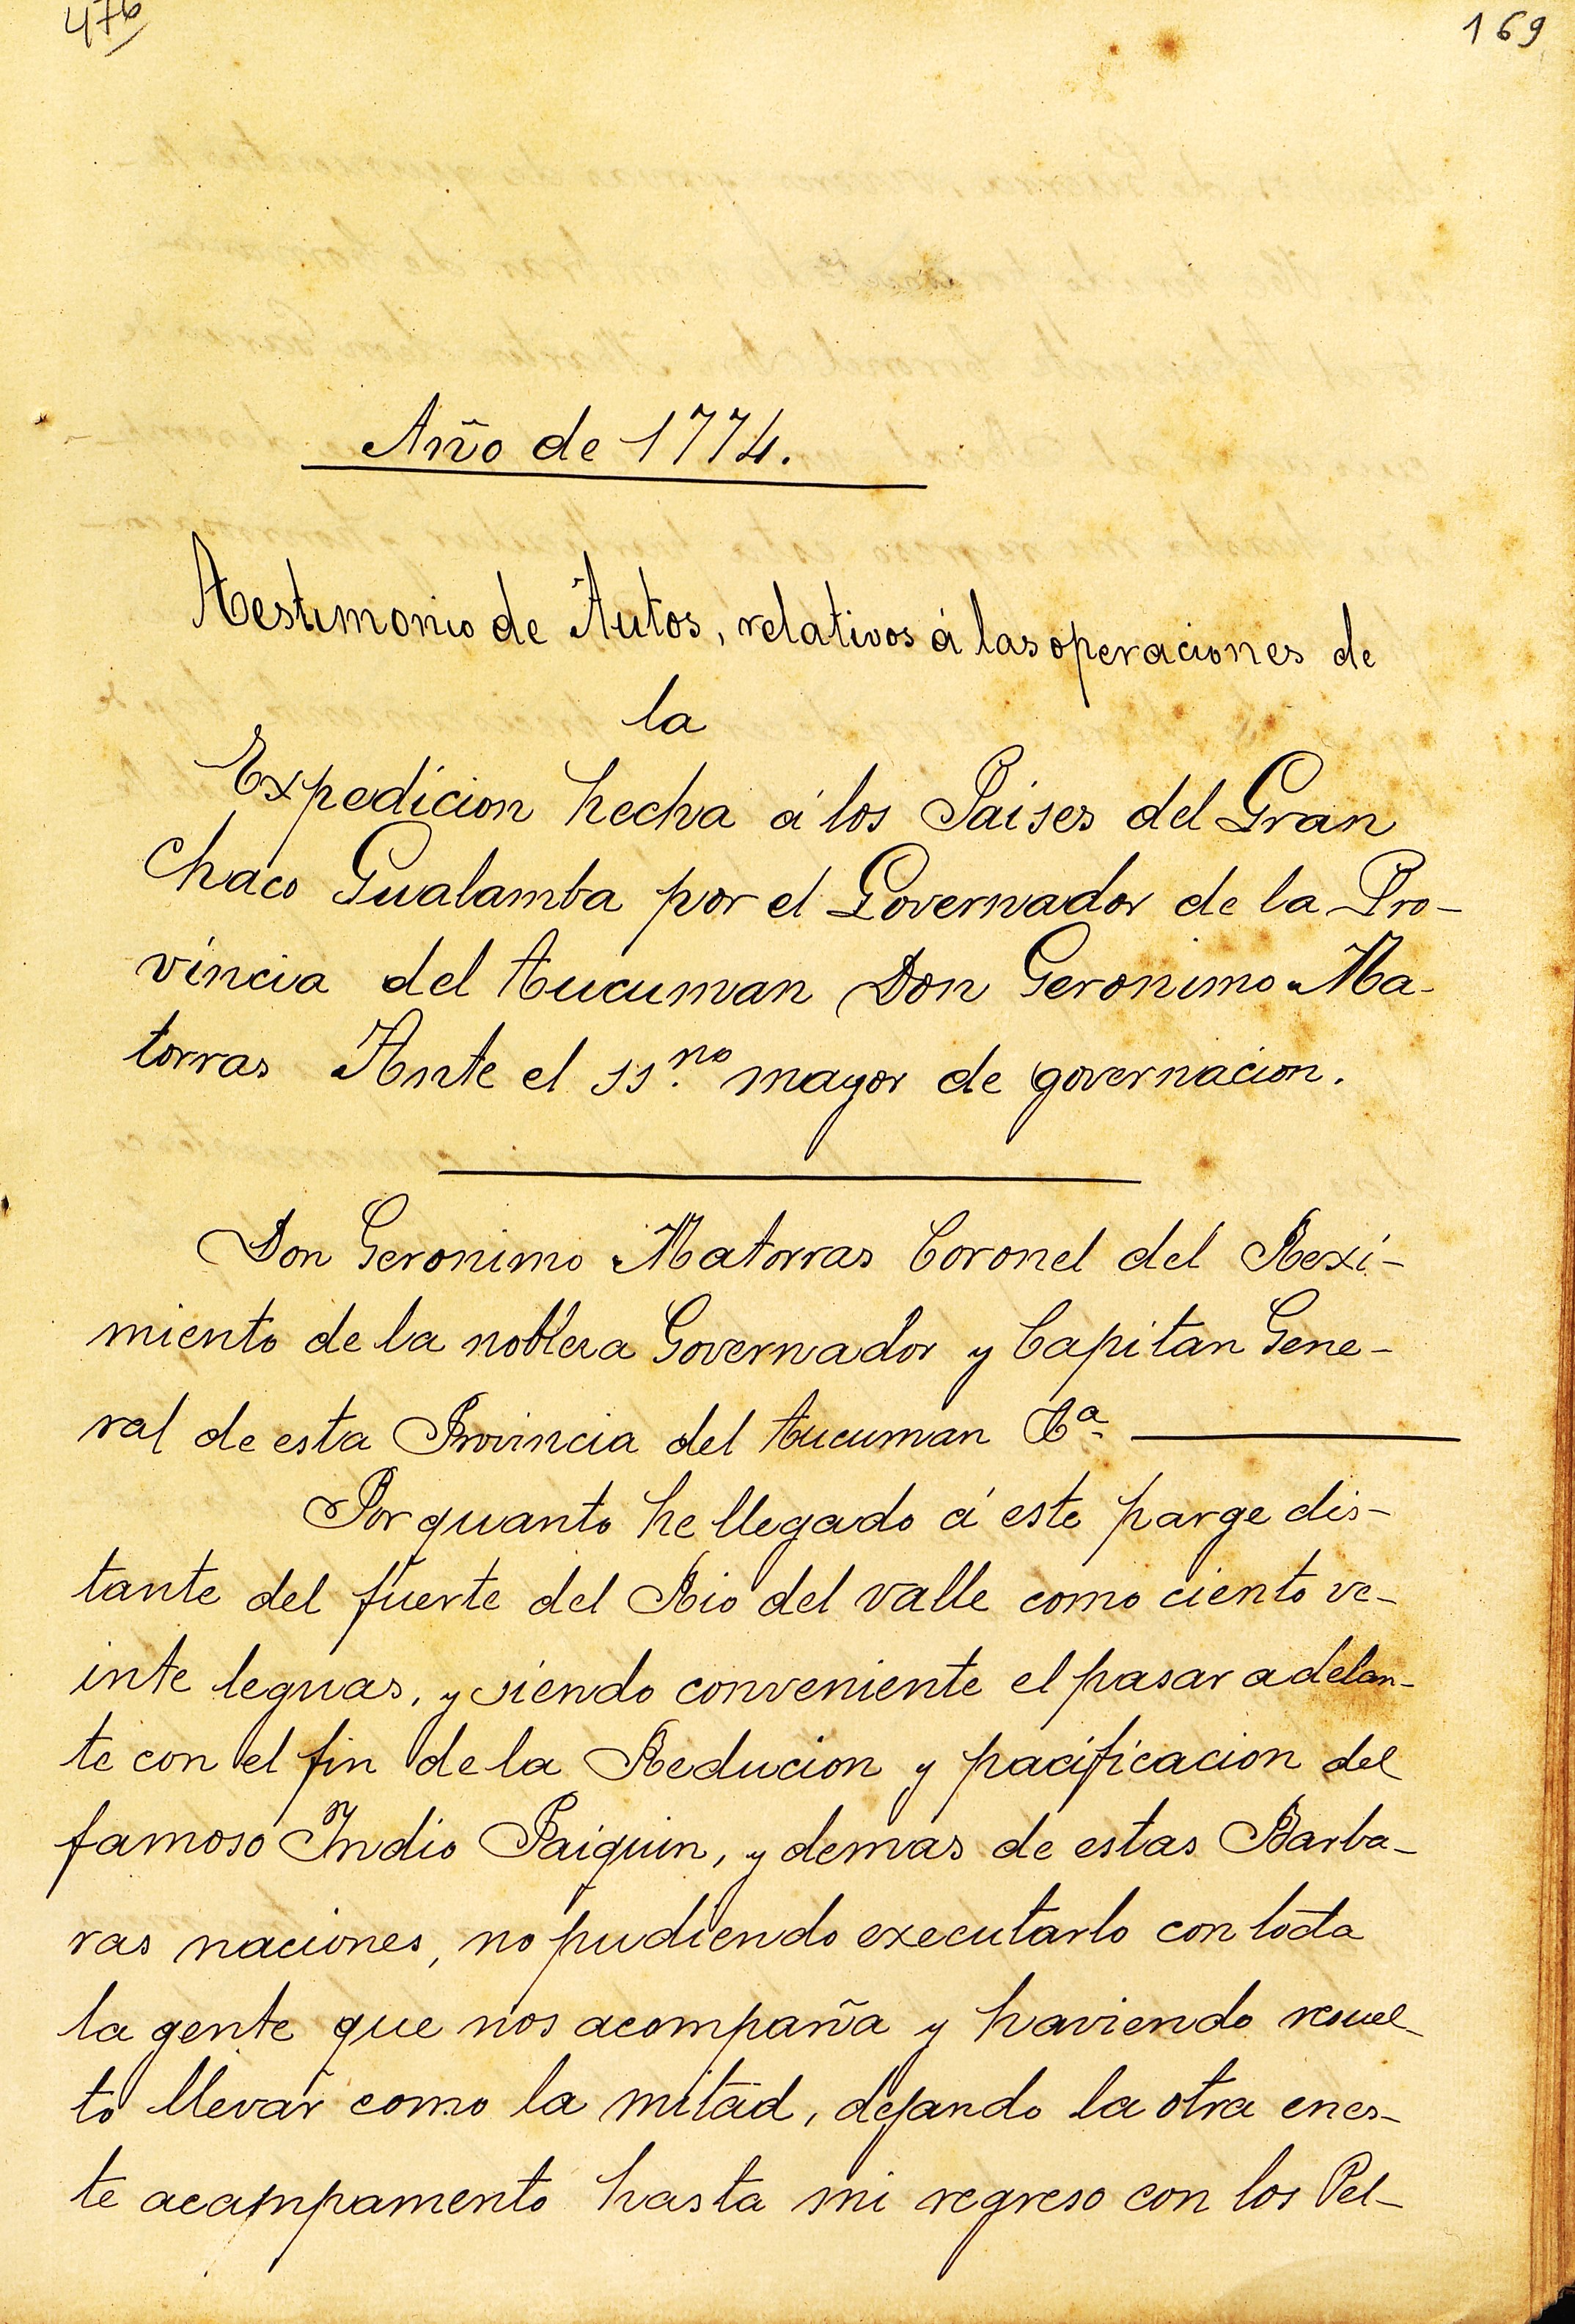 476
169
Año de 1774.
Testimonio de Autos, relativos á las operaciones de
la
Expedicion hecha á los Paises del Gran
Chaco Gualamba por el Governador de la Pro-
vincia del Tucuman Don Geronimo Ma-
torras Ante el ss.no mayor de governacion.
Don Geronimo Matorras Coronel del Rexi-
miento de la nobleza Governador y Capitan Gene-
ral de esta Provincia del Tucuman &a.
Por quanto he llegado á este parge dis-
tante del fuerte del Rio del valle como ciento ve-
inte leguas, y siendo conveniente el pasar adelan-
te con el fin de la Reducion y pacificacion del
famoso Indio Paiquin, y demas de estas Barba-
ras naciones, no pudiendo executarlo con toda
la gente que nos acompaña y haviendo resuel-
to llevar como la mitad, dejando la otra enes-
te acampamento hasta mi regreso con los Pel-